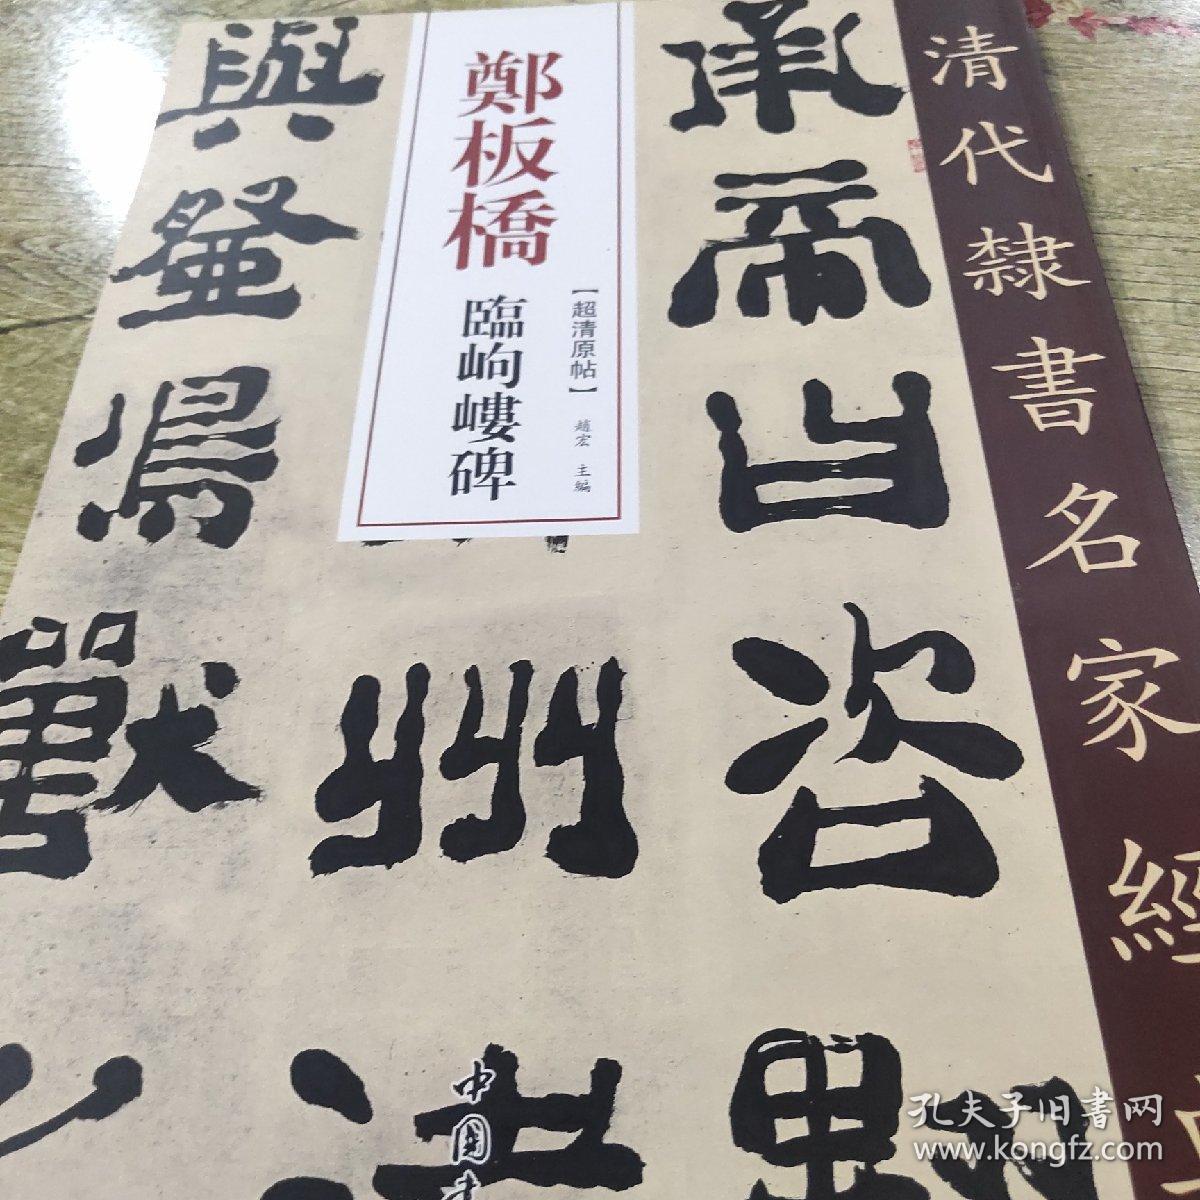 清代隸書名家經
鄭板橋
臨岣嶁碑
【超清原帖】
趙宏 主編
承帝曰咨
州
與登鳥獸
中國書
孔夫子旧书网
www.kongfz.com